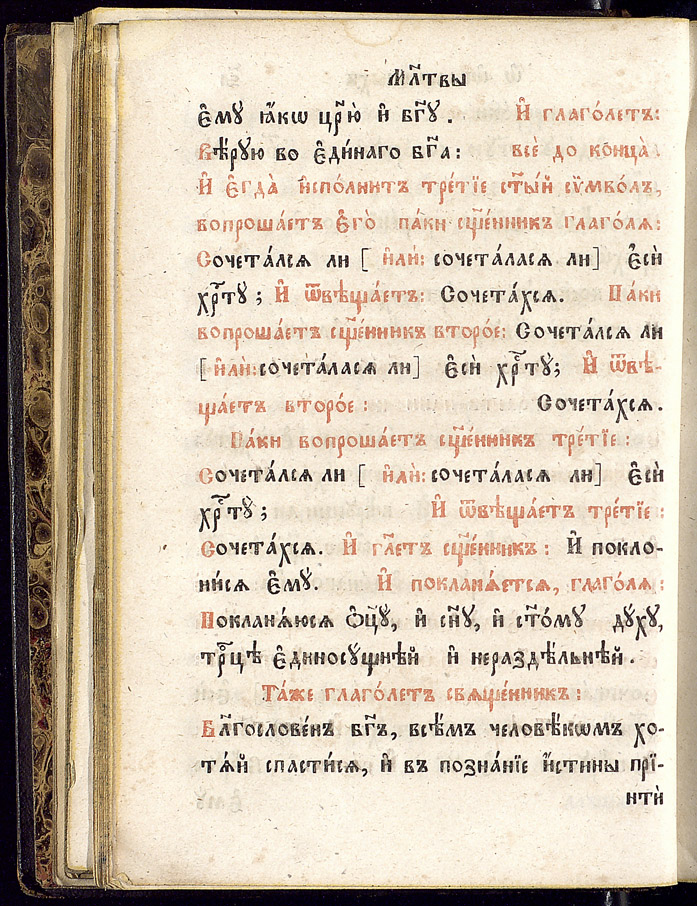 Мл҃твы
є҆мꙋ̀ ꙗ҆́кѡ цр҃ю̀ и҆ бг҃ꙋ. И҆ глаго́летъ:
Вѣ́рꙋю во є҆ди́наго бг҃а: всѐ до конца̀.
И҆ є҆гда̀ и҆спо́лнитъ тре́тїе ст҃ы́й сѷмво́лъ,
вопроша́етъ є҆го̀ па́ки сщ҃е́нникъ глаго́лѧ:
Сочета́лсѧ ли [ и҆лѝ: сочета́ласѧ ли] є҆сѝ
хрⷭ҇тꙋ̀; И҆ ѿвѣща́етъ: Сочета́хсѧ. Па́ки
вопроша́етъ сщ҃е́нникъ второ́е: Сочета́лсѧ ли
[ и҆лѝ: сочета́ласѧ ли] є҆сѝ хрⷭ҇тꙋ̀; И҆ ѿвѣ-
ща́етъ второ́е: Сочета́хсѧ.
Па́ки вопроша́етъ сщ҃е́нникъ тре́тїе:
Сочета́лсѧ ли [ и҆лѝ: сочета́ласѧ ли] є҆сѝ
хрⷭ҇тꙋ̀; И҆ ѿвѣща́етъ тре́тїе:
Сочета́хсѧ. И҆ гл҃етъ сщ҃е́нникъ: И҆ покло-
ни́сѧ є҆мꙋ̀. И҆ покланѧ́етсѧ, глаго́лѧ:
Покланѧ́юсѧ ѻ҆ц҃ꙋ̀, и҆ сн҃ꙋ, и҆ ст҃о́мꙋ дꙋ́хꙋ,
трⷪ҇цѣ є҆диносꙋ́щнѣй и҆ нераздѣ́льнѣй.
Та́же глаго́летъ свѧще́нникъ:
Бл҃гослове́нъ бг҃ъ, всѣ̑мъ человѣ́кѡмъ хо-
тѧ́й спасти́сѧ, и҆ въ позна́нїе и҆́стины прїи-
нтѝ